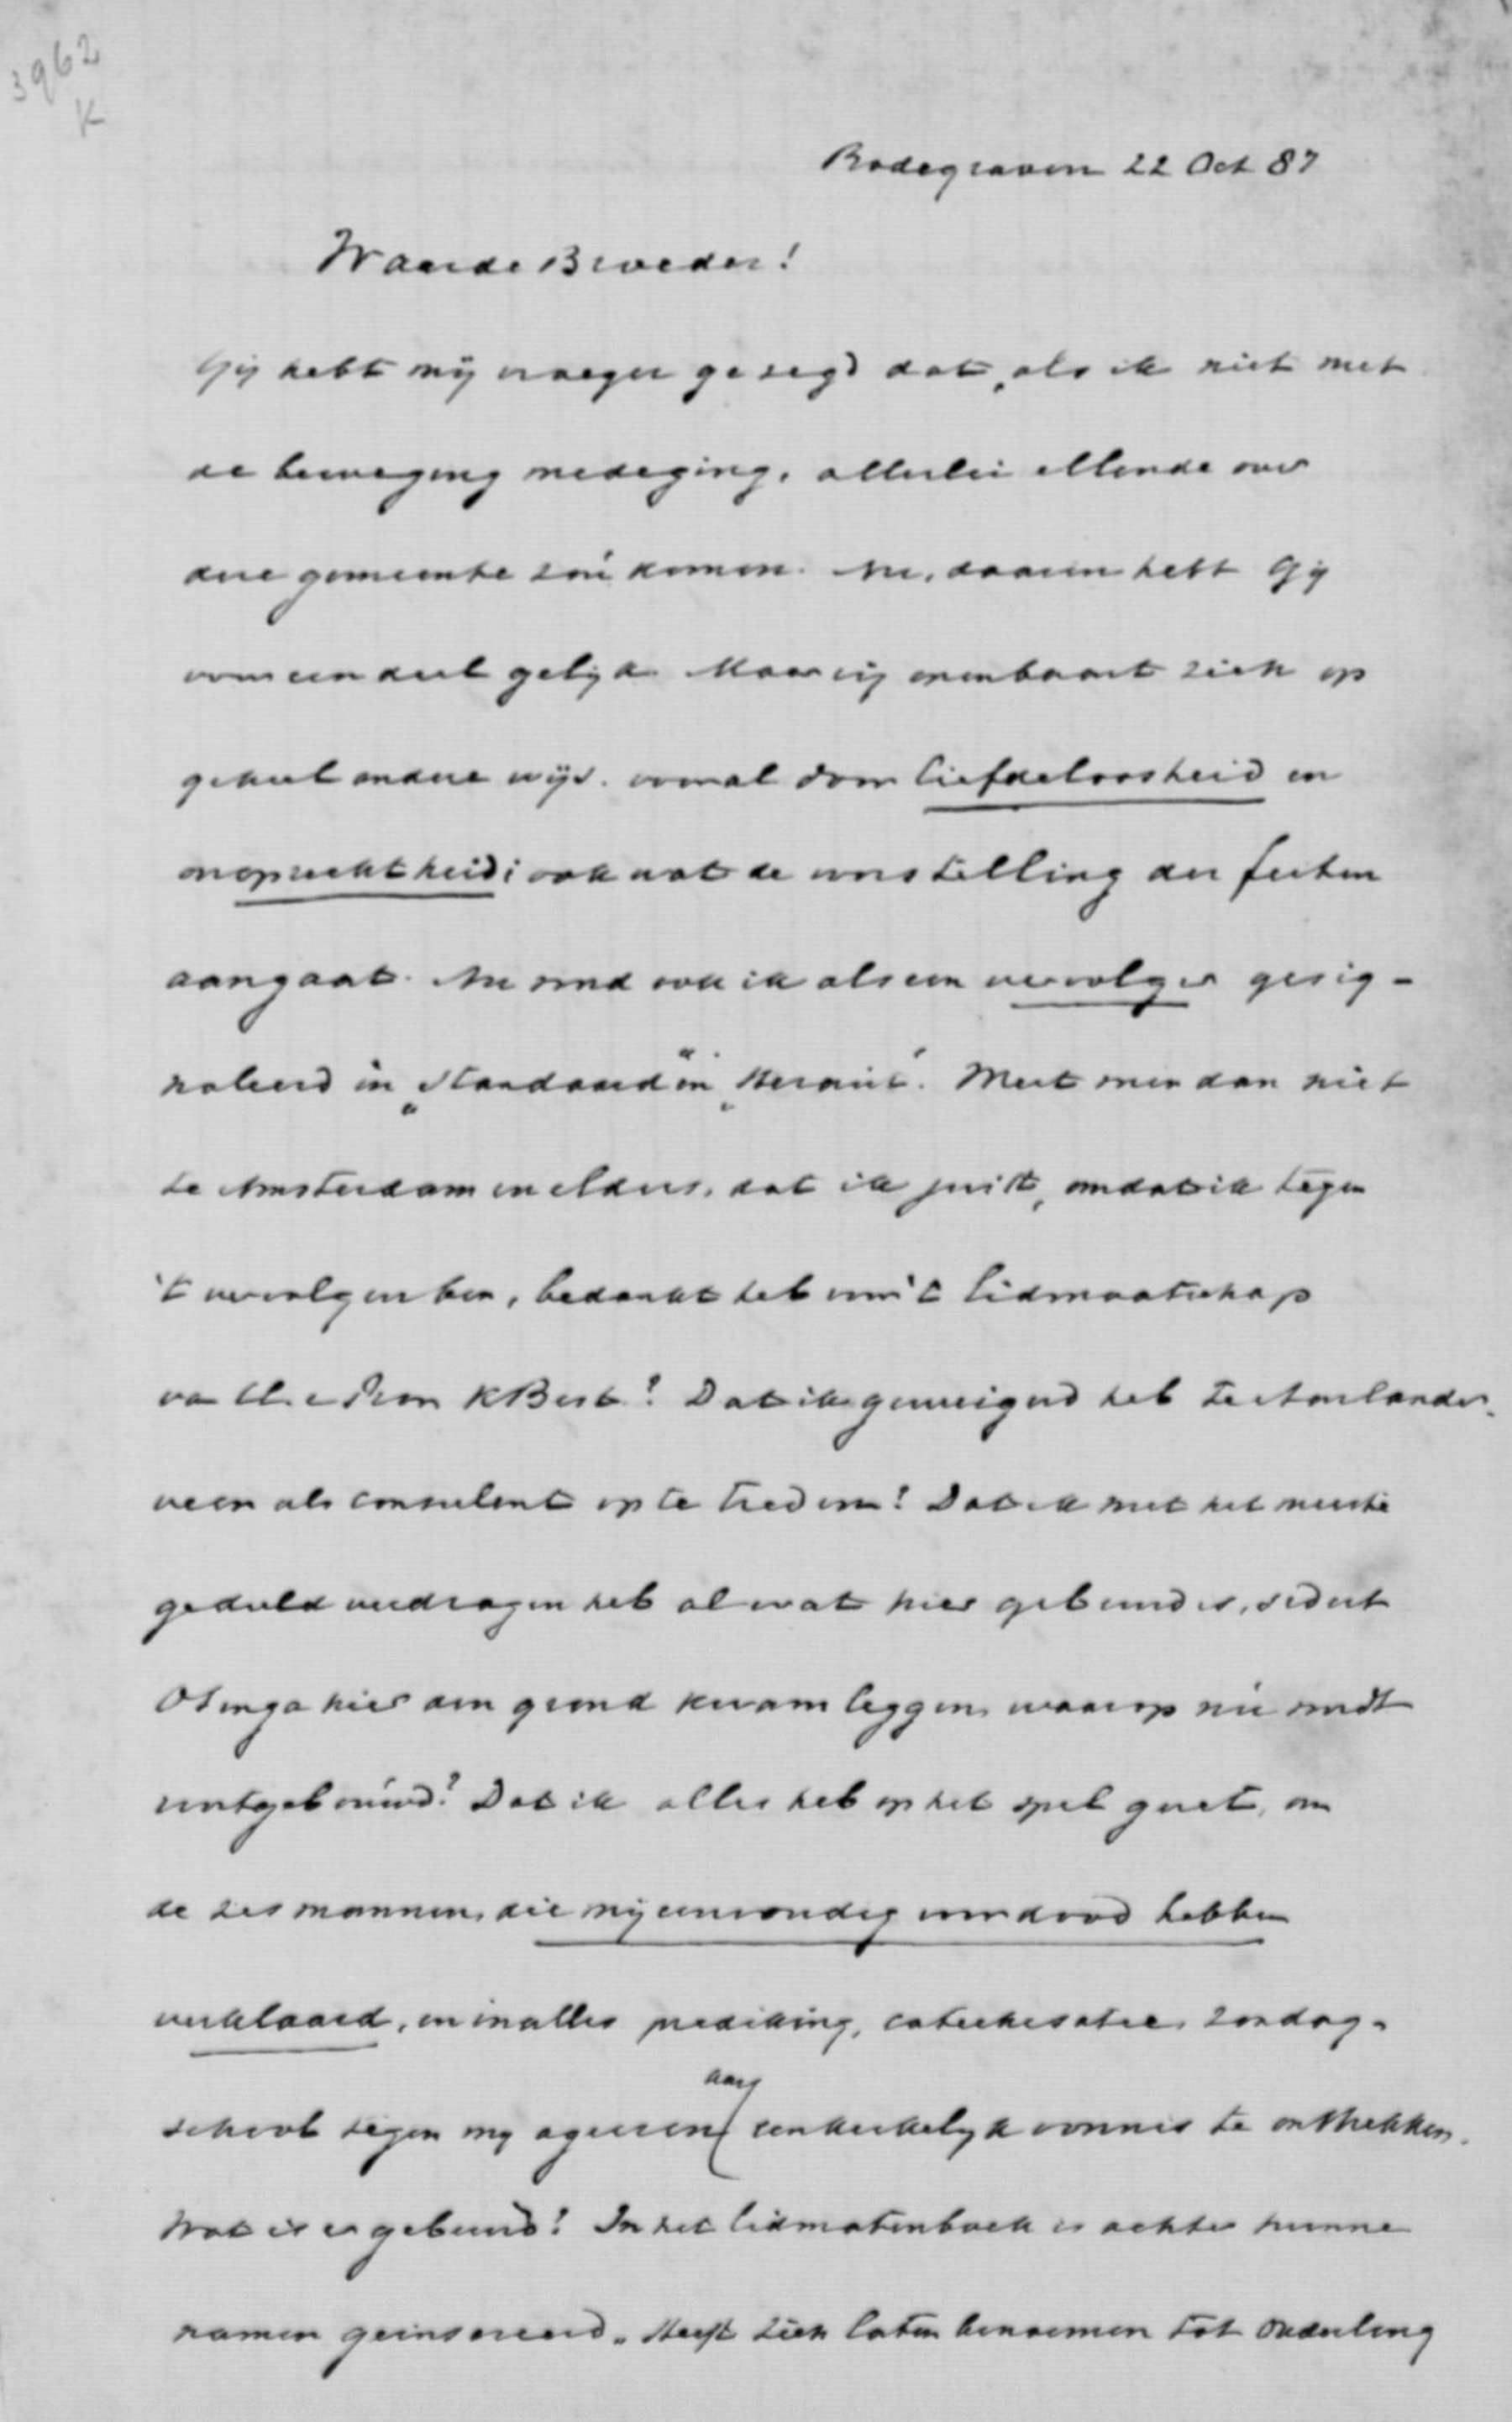 3962
K
Bodegraven 22 Oct 87
Waarde Broeder!
Gij hebt mij vroeger gezegd dat, als ik niet met
de beweging medeging, allerlei ellende over
deze gemeente zou komen. Nu, daarin hebt Gij
voor een deel gelijk. Maar zij openbaart zich op
geheel andere wijs. vooral door liefdeloosheid en
onoprechtheid; ook wat de voorstelling der feiten
aangaat. Nu word ook ik als een vervolger gesig-
naleerd in „Standaard" en „Heraut". Weet men dan niet
te Amsterdam en elders, dat ik juist, omdat ik tegen
't vervolgen ben, bedankt heb voor 't lidmaatschap
van Cl. e Prov KBest? Dat ik geweigerd heb te Aarlander-
veen als consulent op te treden? Dat ik met het meeste
geduld verdragen heb al wat hier gebeurd is, sedert
Osinga hier den grond kwam leggen, waarop nu wordt
voortgebouwd? Dat ik alles heb op het spel gezet, om
de zes mannen, die mij eenvoudig voor dood hebben
verklaard, en in alles prediking, catechesatie, zondag-
school tegen mij ageeren aan een kerkelijk vonnis te onttrekken.
Wat is er gebeurd? In het lidmatenboek is achter hunne
namen geinsereerd „Heeft zich laten benoemen tot Ouderling